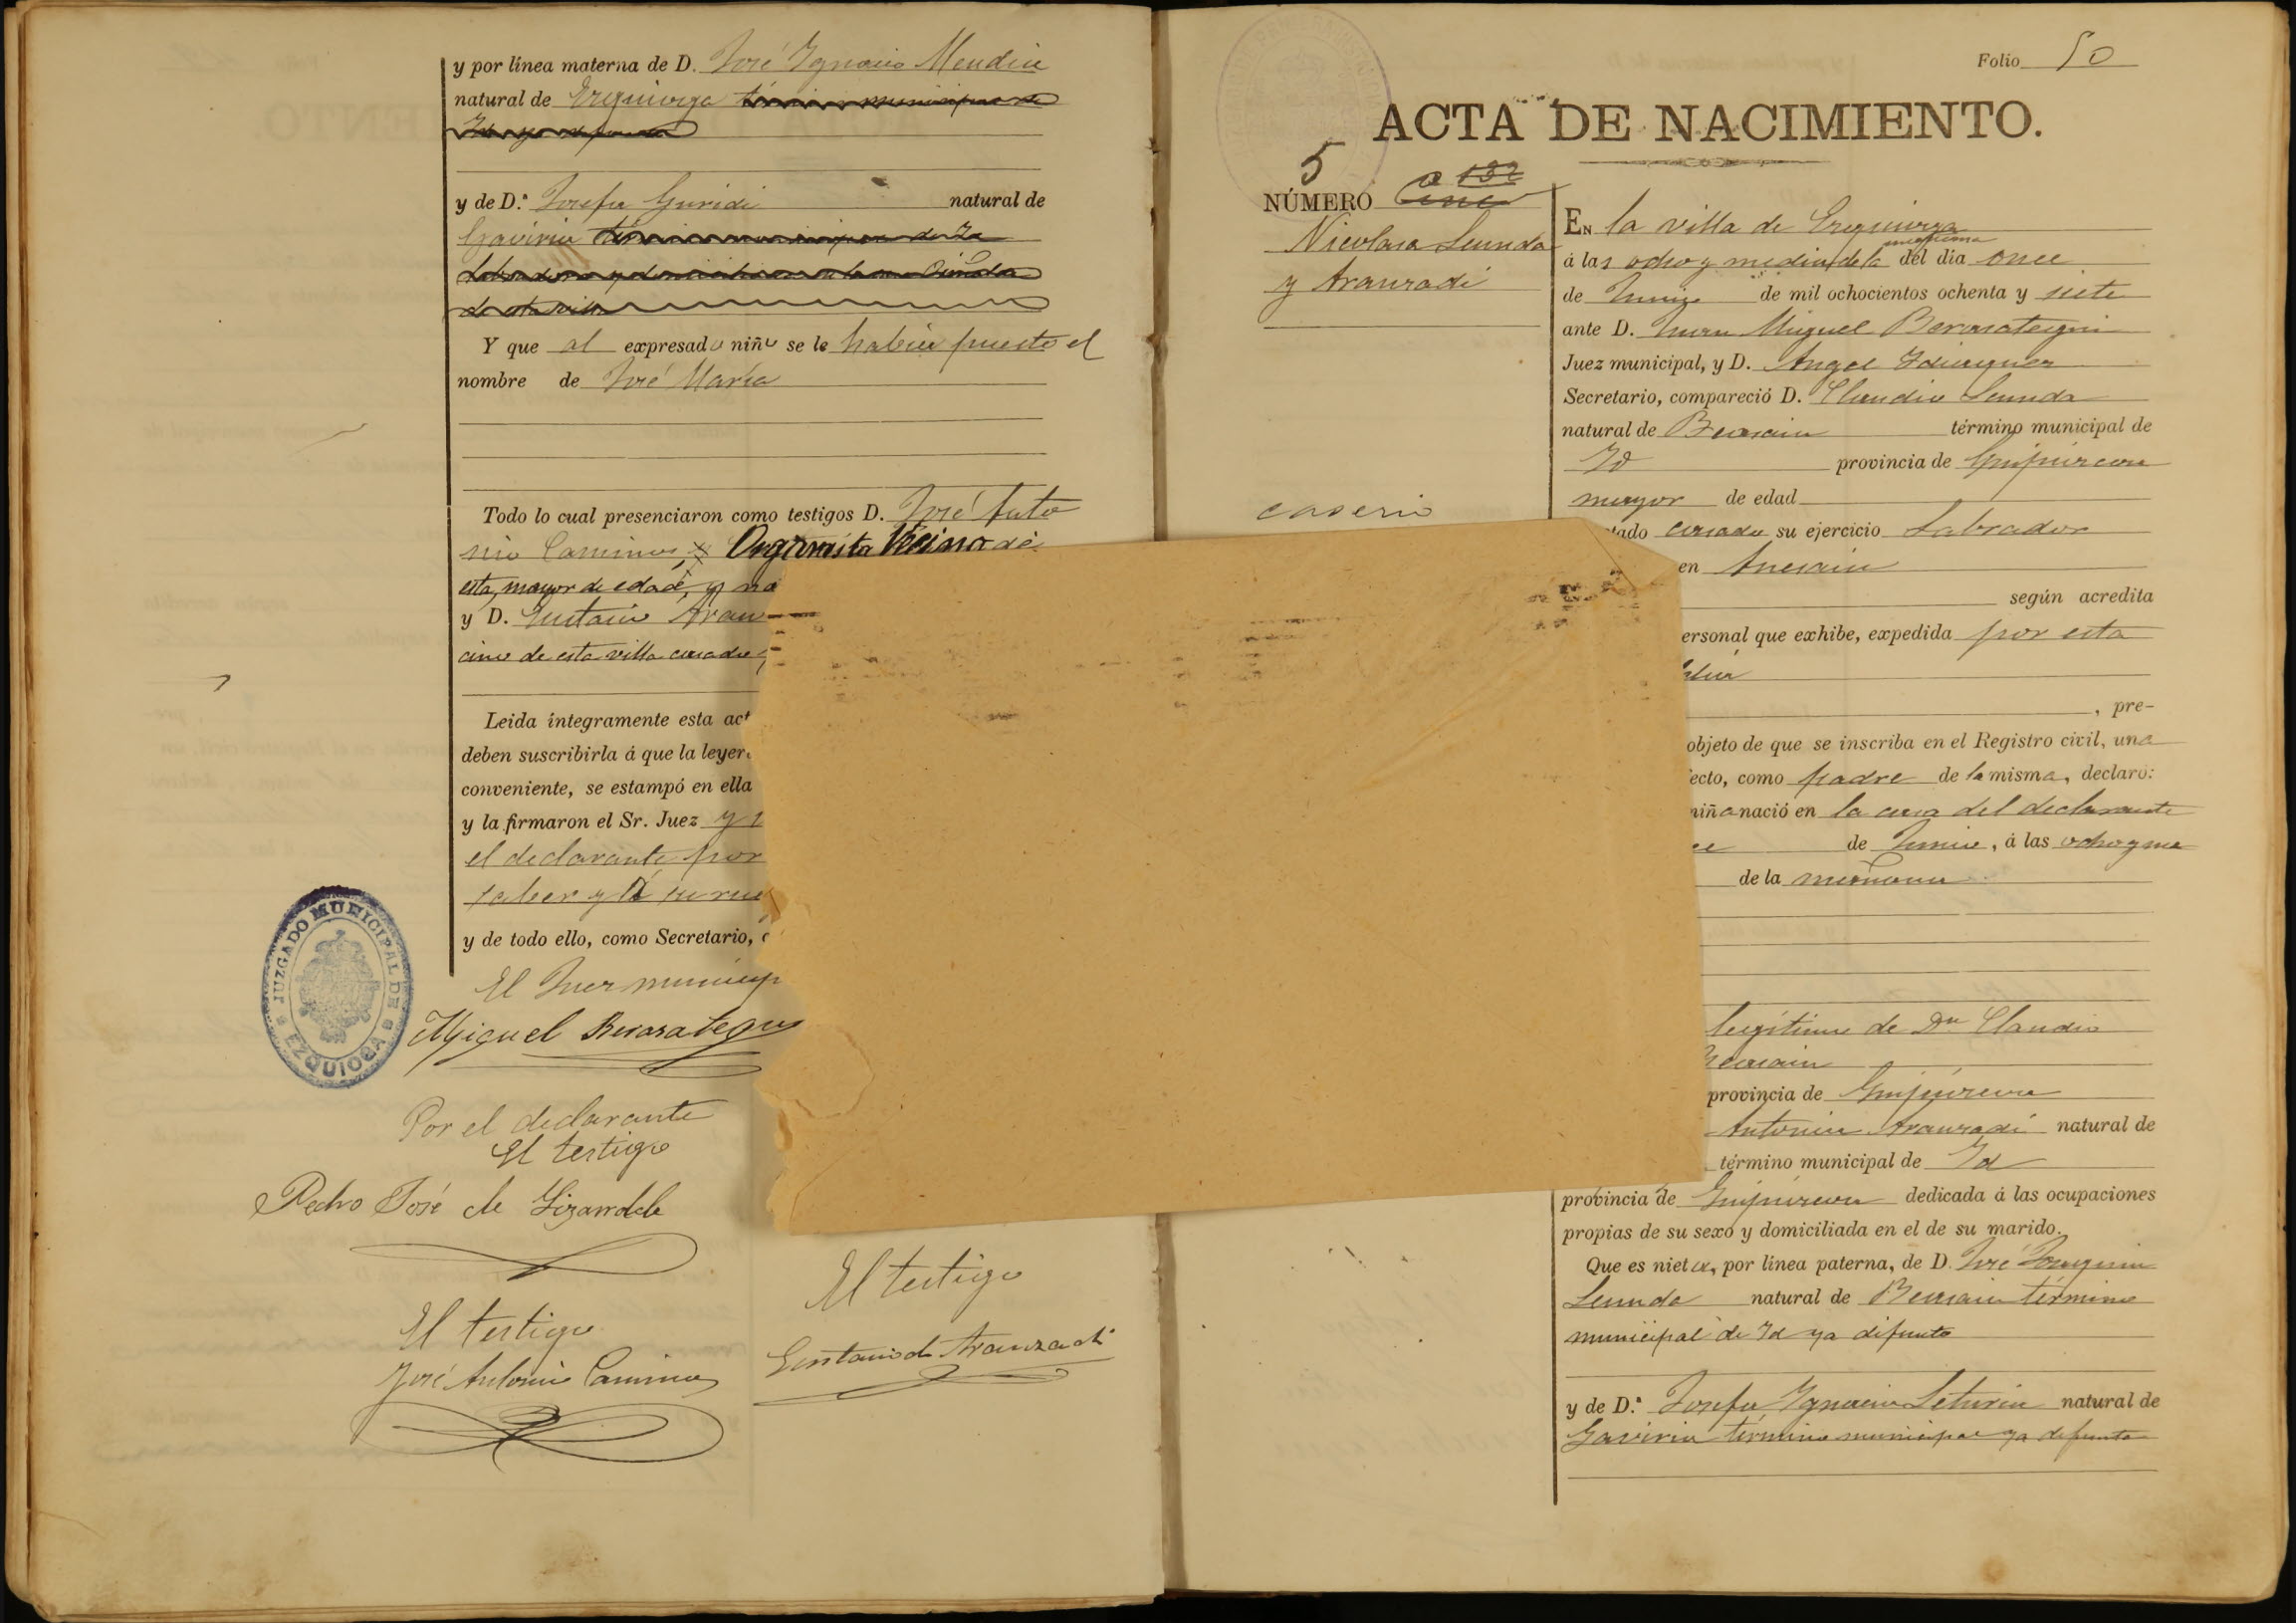 y por línea materna de D. José Ignacio Mendia
natural de Ezquioga término municipal de
Id ya difunto
y de D.ª Josefa Guridi natural de
Gaviria término municipal de Id
Labradora y domiciliada
de esta villa
Y que al expresado niño se le había puesto el
nombre de José María
Todo lo cual presenciaron como testigos D. José Anto
nio Caminos, Organista Vecino de
esta, mayor de edad, y
y D. Eustasio Aran
cino de esta villa casado
Leida íntegramente esta act
deben suscribirla á que la leyer
conveniente, se estampó en ella
y la firmaron el Sr. Juez y
el declarante por
saber y á su rue
y de todo ello, como Secretario,
El Juez municip
Miguel Berasategui
JUZGADO MUNICIPAL DE
EZQUIOGA
Por el declarante
El testigo
Pedro José de Lizarralde
El testigo
José Antonio Caminos
El testigo
Eustasio de Aranzadi
Folio 50
ACTA DE NACIMIENTO.
5
NÚMERO Cinco
Nicolasa Leunda
y Aranzadi
caserio
EN la villa de Ezquioga
á las ocho y media de la mañana del dia once
de Junio de mil ochocientos ochenta y siete
ante D. Juan Miguel Berasategui
Juez municipal, y D. Angel Idiaquez
Secretario, compareció D. Claudio Leunda
natural de Beasain término municipal de
Id provincia de Guipúzcoa
mayor de edad
tado casado su ejercicio Labrador
en Anesain
según acredita
ersonal que exhibe, expedida por esta
, pre-
objeto de que se inscriba en el Registro civil, una
ecto, como padre de la misma, declaró:
niña nació en la casa del declarante
de Junio, á las ocho y me
de la mañana
legítima de Dn Claudio
Beasain
provincia de Guipúzcoa
Antonia Aranzadi natural de
término municipal de Id
provincia de Guipúzcoa dedicada á las ocupaciones
propias de su sexo y domiciliada en el de su marido.
Que es nieta, por línea paterna, de D. José Joaquin
Leunda natural de Beasain término
municipal de Id ya difunto
y de D.ª Josefa Ignacia Leturia natural de
Gaviria término municipal ya difunta